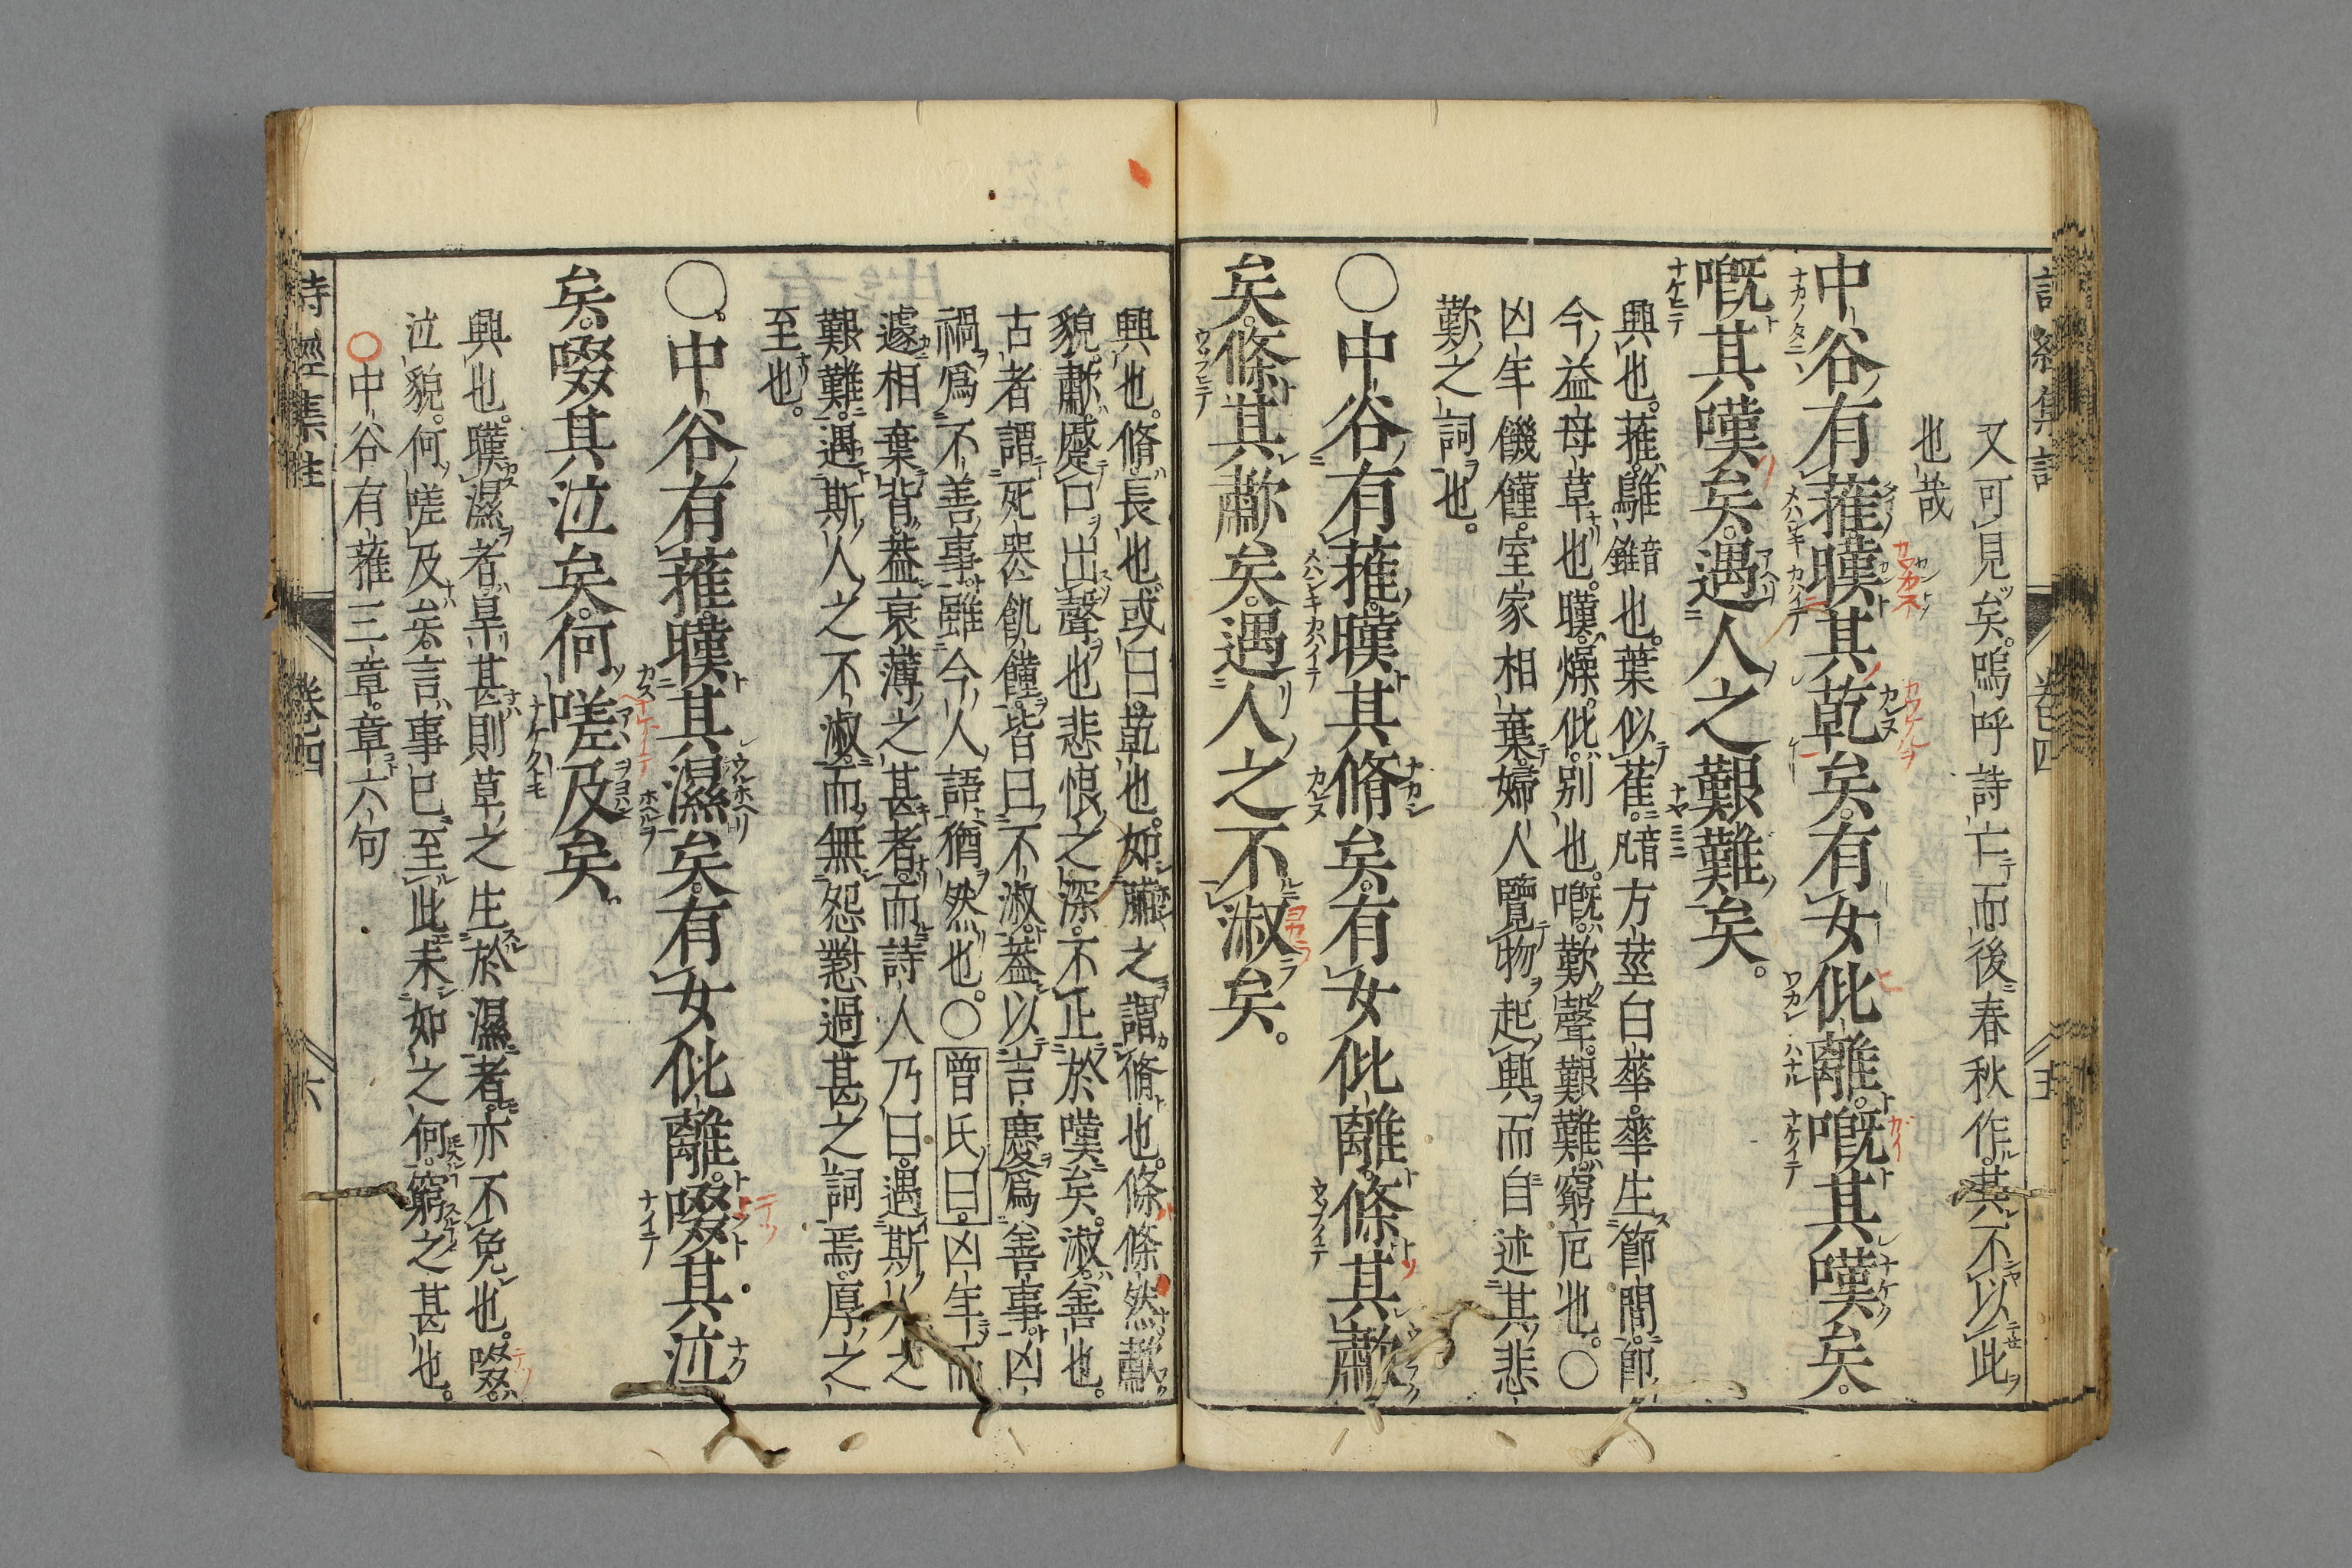 又可見矣。嗚呼詩亡而後春秋作。其不以此
也哉
中谷有蓷暵其乾矣。有女仳離。嘅其嘆矣。
嘅其嘆矣。遇人之艱難矣。
興也。蓷。鵻音錐也。葉似萑。方莖白華。華生節間。即
今益母草也。暵。燥。仳。別也。嘅。歎聲。艱難。窮厄也。〇
凶年饑饉。室家相棄。婦人覽物起興而自述其悲
歎之詞也。
〇中谷有蓷。暵其脩矣。有女仳離。條其歗
矣。條其歗矣。遇人之不淑矣。
興也。脩。長也。或曰。乾也。如脯之謂脩也。條。條然歗
貌。歗。蹙口出聲也。悲恨之深。不止於嘆矣。淑。善也。
古者謂死喪飢饉。皆曰不淑。蓋以吉慶爲善事。凶
禍爲不善事。雖今人語猶然也。〇曾氏曰。凶年而
遽相棄背。蓋衰薄之甚者。而詩人乃曰。遇斯人之
艱難。遇斯人之不淑。而無怨懟過甚之詞焉。厚之
至也。
〇。中谷有蓷。暵其濕矣。有女仳離。啜其泣
矣。啜其泣矣。何嗟及矣。
興也。暵濕者。旱甚則草之生於濕者。亦不免也。啜。
泣貌。何嗟及矣。言事已至此。未如之何。窮之甚也。
〇中谷有蓷三章。章六句
詩經集註 卷四 六